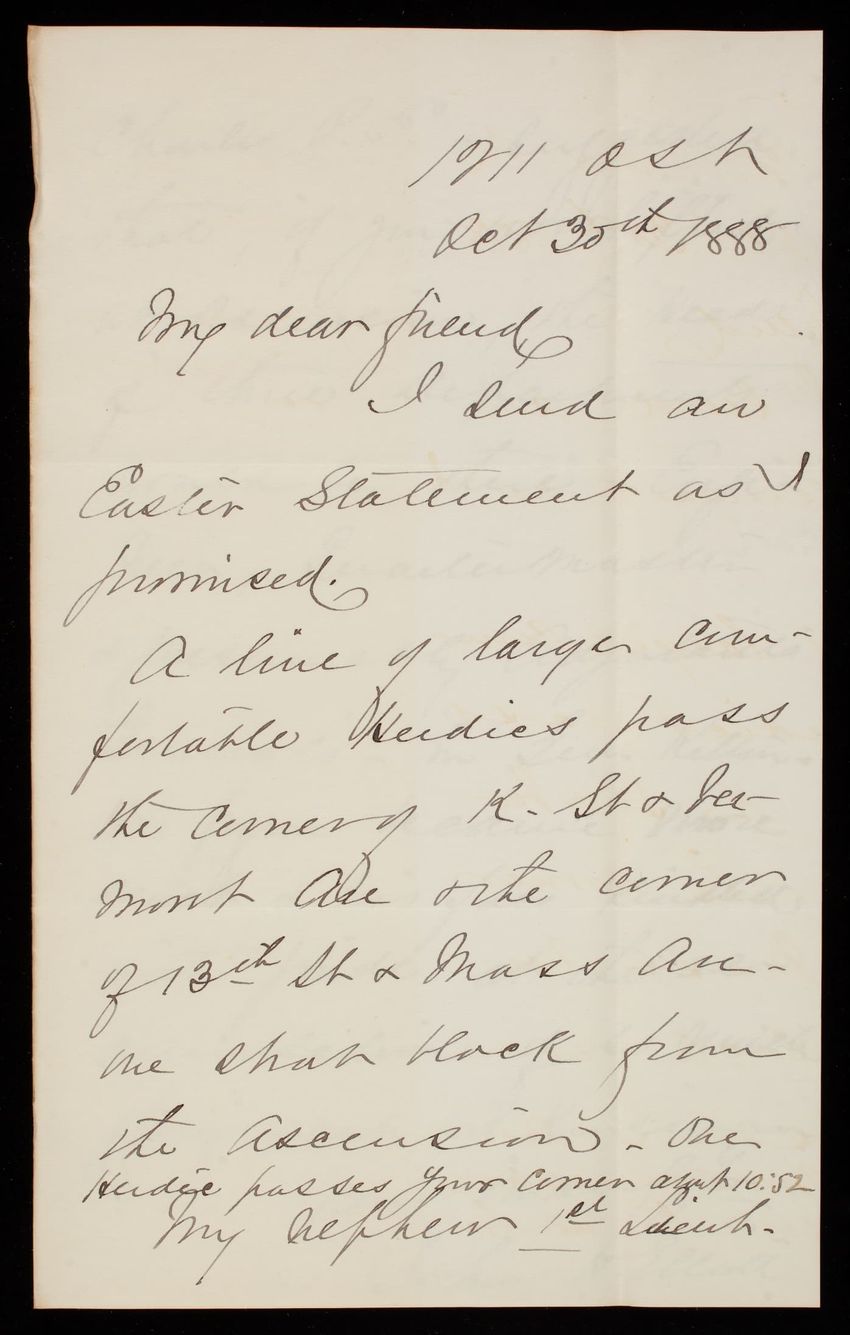 1711 Q St
Oct 30th 1888
My dear friend,
I send an
Easter Statement as I
promised.
A line of large com-
fortable Herdics pass
the corner of K. St & Ver-
mont Ave & the corner
of 13th St & Mass Ave -
one short block from
the Ascension. One
Herdic passes your corner about 10:52
My nephew 1st Lieut.